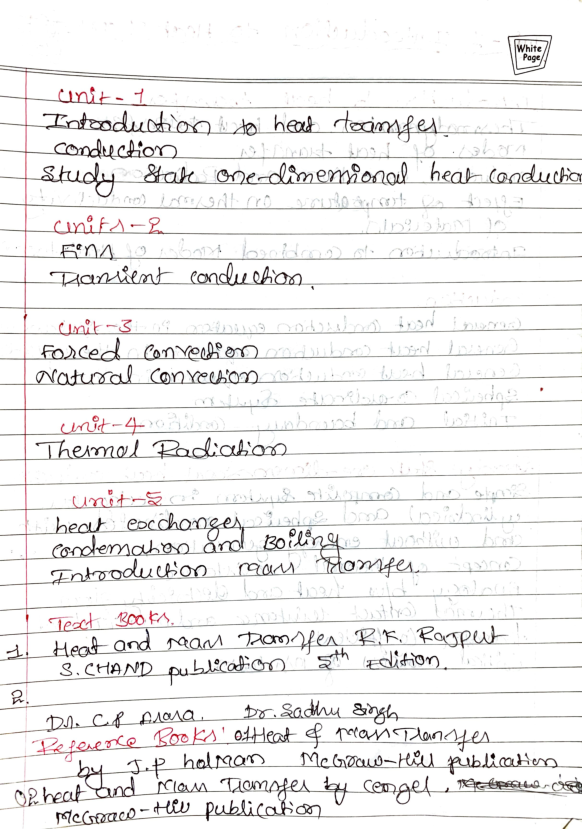 White
Page
Unit - 1
Introduction to heat transfer.
Conduction
Study State one-dimensional heat conduction
Units - 2
Fins
Transient conduction.
Unit - 3
Forced Convection
Natural Convection
Unit - 4
Thermal Radiation
Unit - 5
heat exchanges
Condensation and Boiling
Introduction mass Transfer.
Text Books.
1. Heat and Mass Transfer R.K. Rajput
S.CHAND publication 5th Edition.
2.
Dr. C.P Arora. Dr. Sadhu Singh
Reference Books: of Heat & Mass Transfer
by J.P holman McGraw-Hill publication
02 heat and Mass Transfer by cengel,
McGraw-Hill publication